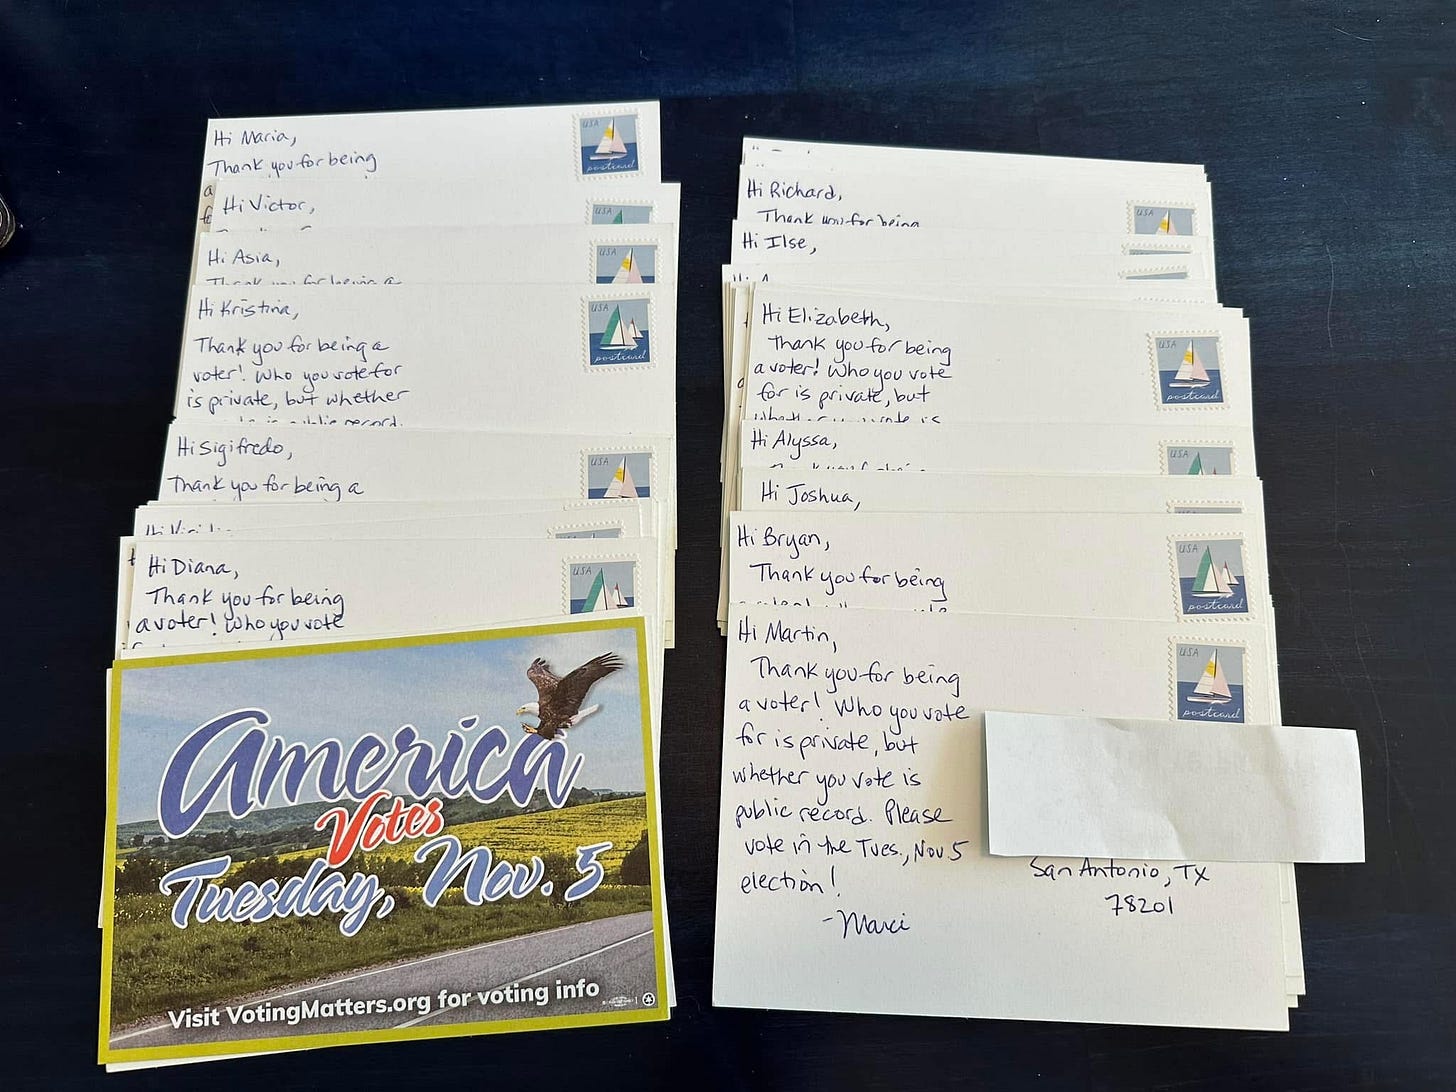 Hi Maria,
Thank you for being
a
USA
postcard
Hi Victor,
USA
Hi Asia,
Thank you for being a
USA
Hi Kristina,
Thank you for being a
voter! Who you vote for
is private, but whether
is public record.
USA
postcard
Hi Sigifredo,
Thank you for being a
USA
Hi
Hi Diana,
Thank you for being
a voter! Who you vote
USA
America
Votes
Tuesday, Nov. 5
Visit VotingMatters.org for voting info
Hi Richard,
Thank you for being
USA
Hi Ilse,
Hi Elizabeth,
Thank you for being
a voter! Who you vote
for is private, but
whether you vote is
USA
postcard
Hi Alyssa,
USA
Hi Joshua,
Hi Bryan,
Thank you for being
USA
postcard
Hi Martin,
Thank you for being
a voter! Who you vote
for is private, but
whether you vote is
public record. Please
vote in the Tues., Nov 5
election!
- Marci
USA
postcard
San Antonio, TX
78201